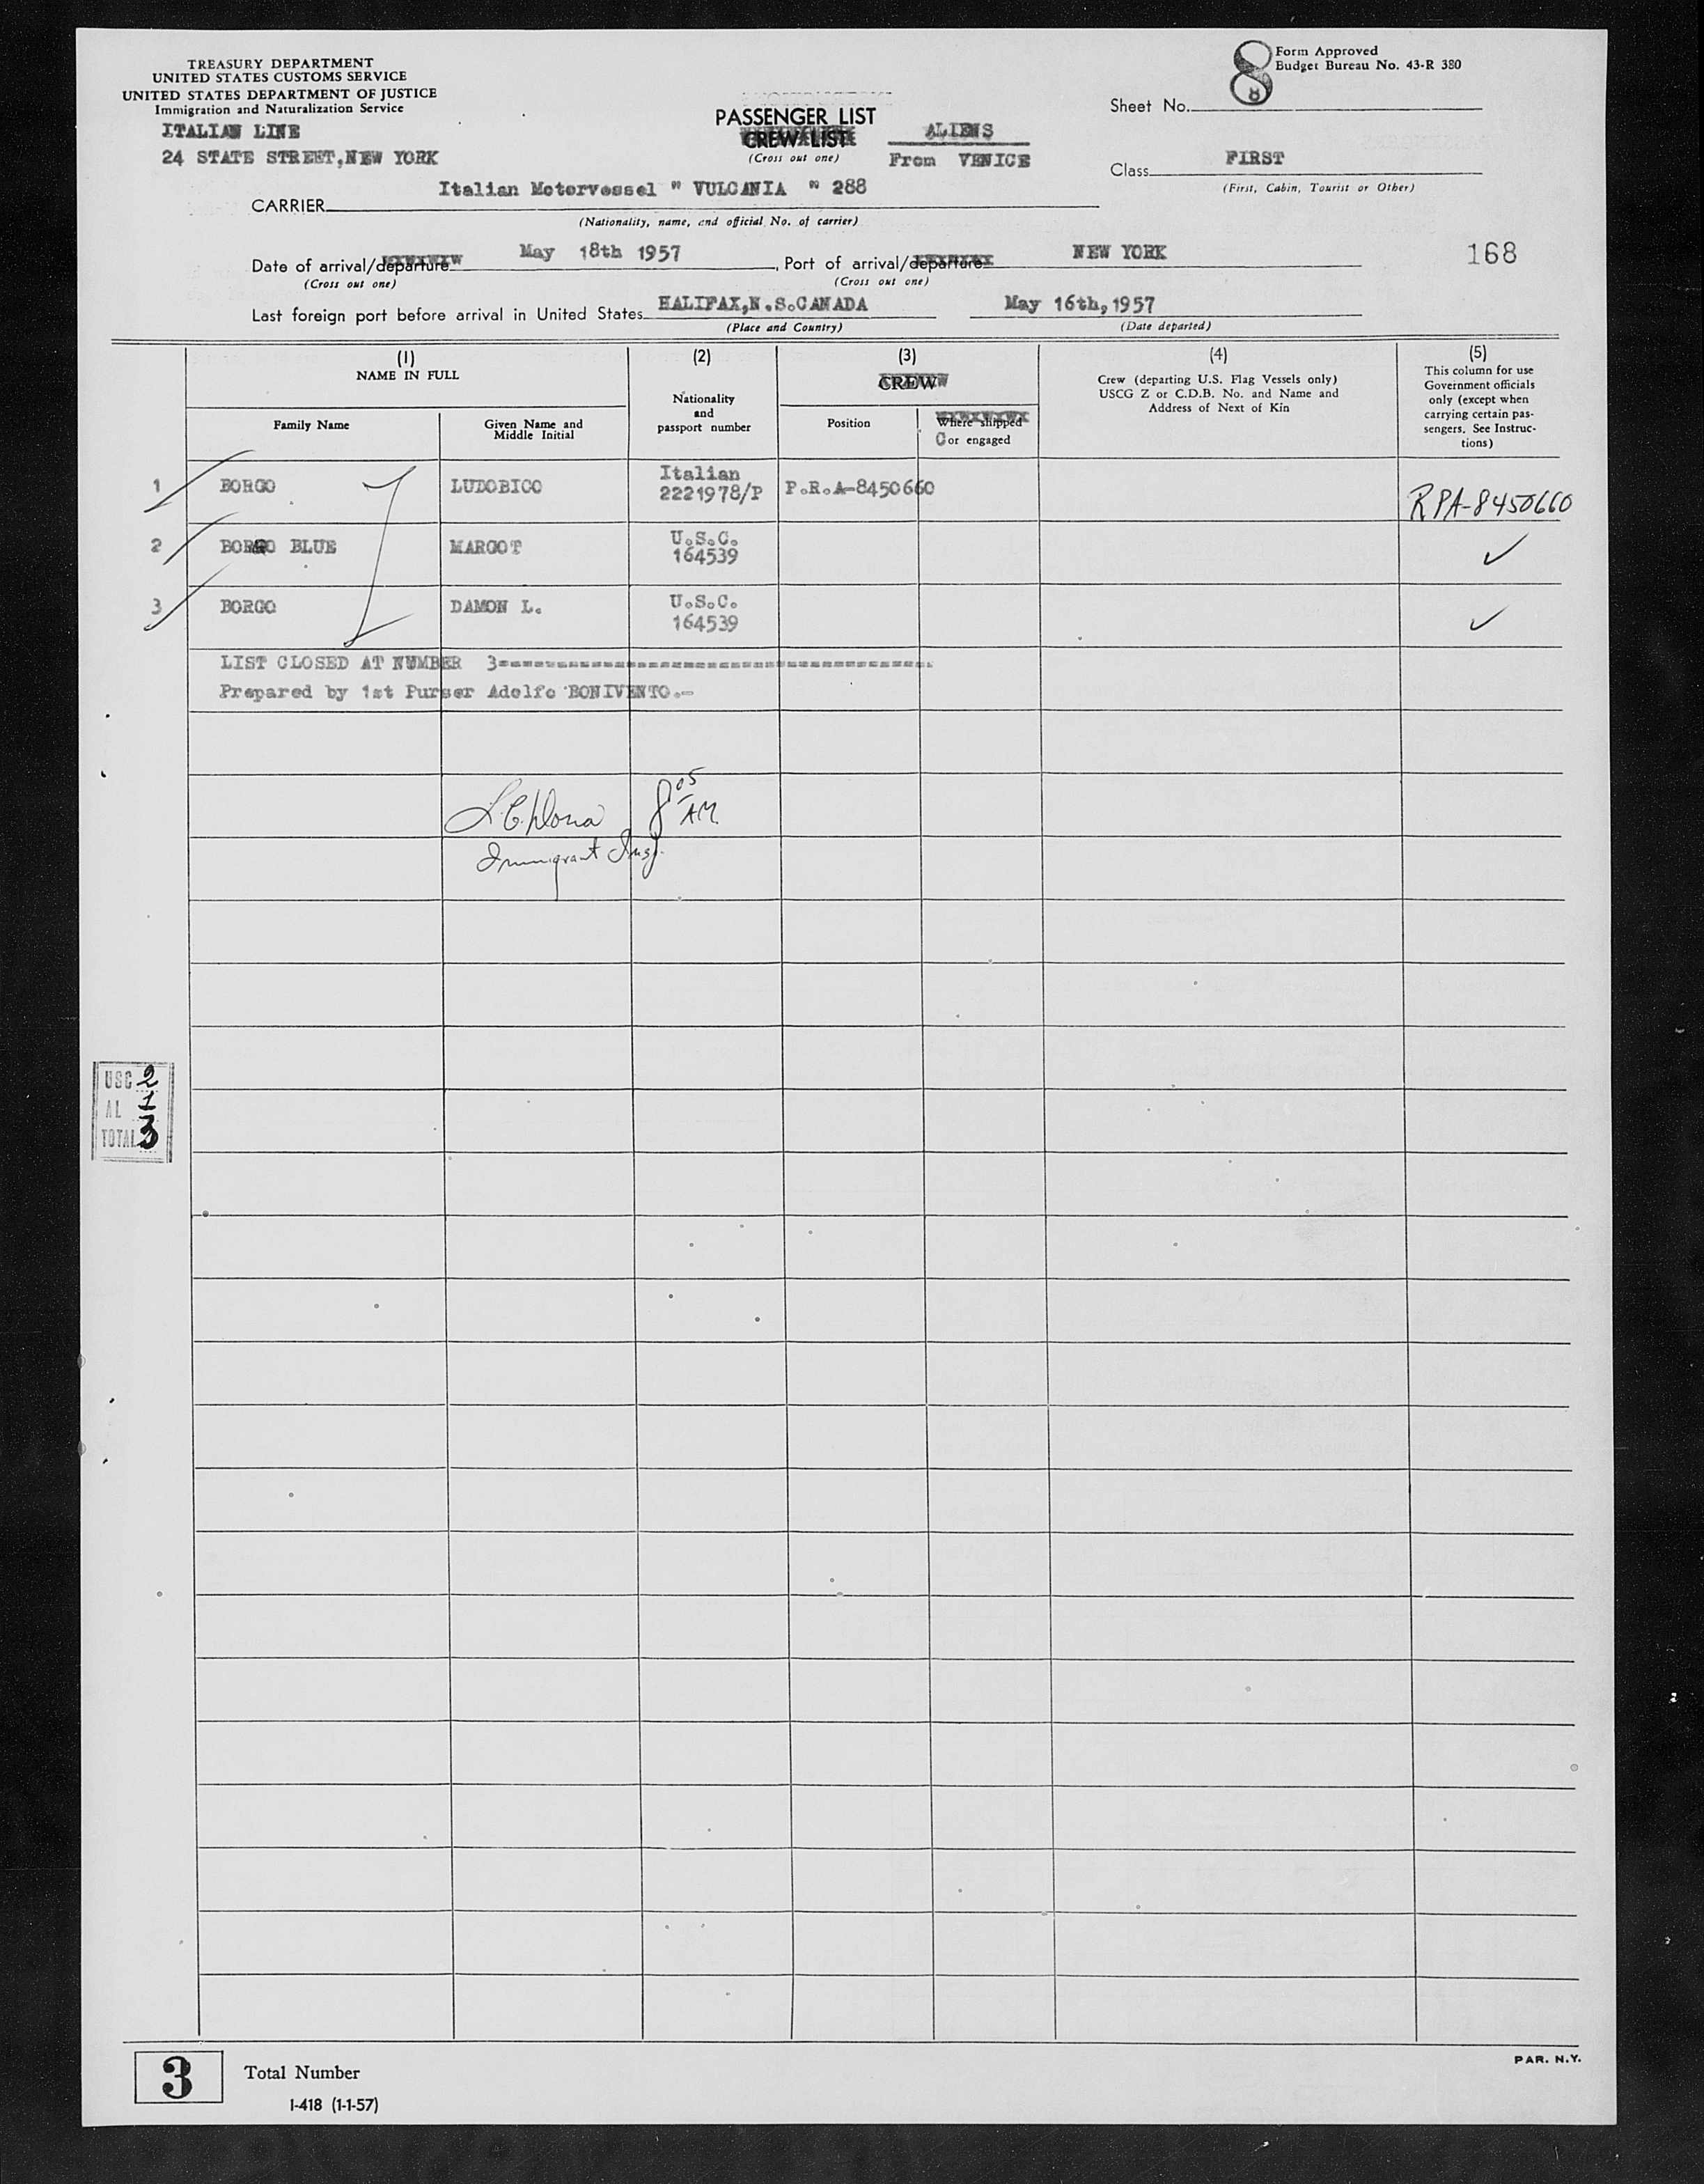 TREASURY DEPARTMENT
UNITED STATES CUSTOMS SERVICE
UNITED STATES DEPARTMENT OF JUSTICE
Immigration and Naturalization Service
ITALIAN LINE
24 STATE STREET,NEW YORK
PASSENGER LIST
CREW LIST
(Cross out one)
ALIENS
From VENICE
8
8
Form Approved
Budget Bureau No. 43-R 380
Sheet No.
Class FIRST
(First, Cabin, Tourist or Other)
CARRIER Italian Motorvessel " VULCANIA " 288
(Nationality, name, and official No. of carrier)
Date of arrival/departure May 18th 1957, Port of arrival/departure NEW YORK
(Cross out one) (Cross out one)
168
Last foreign port before arrival in United States HALIFAX,N.S.CANADA May 16th,1957
(Place and Country) (Date departed)
(1) (2) (3) (4) (5)
NAME IN FULL
Family Name
Given Name and Middle Initial
Nationality and passport number
CREW
Position
Where shipped
C or engaged
Crew (departing U.S. Flag Vessels only)
USCG Z or C.D.B. No. and Name and
Address of Next of Kin
This column for use
Government officials
only (except when
carrying certain pas-
sengers. See Instruc-
tions)
1 BORGO LUDOBICO Italian 2221978/P P.R.A-8450660 RPA-8450660
2 BORGO BLUE MARGOT U.S.C. 164539 ✓
3 BORGO DAMON L. U.S.C. 164539 ✓
LIST CLOSED AT NUMBER 3=============================================
Prepared by 1st Purser Adolfo BONIVENTO.-
8 05 AM
Immigrant Insp.
USC 2
AL 1
TOTAL 3
3 Total Number
I-418 (1-1-57)
PAR. N.Y.